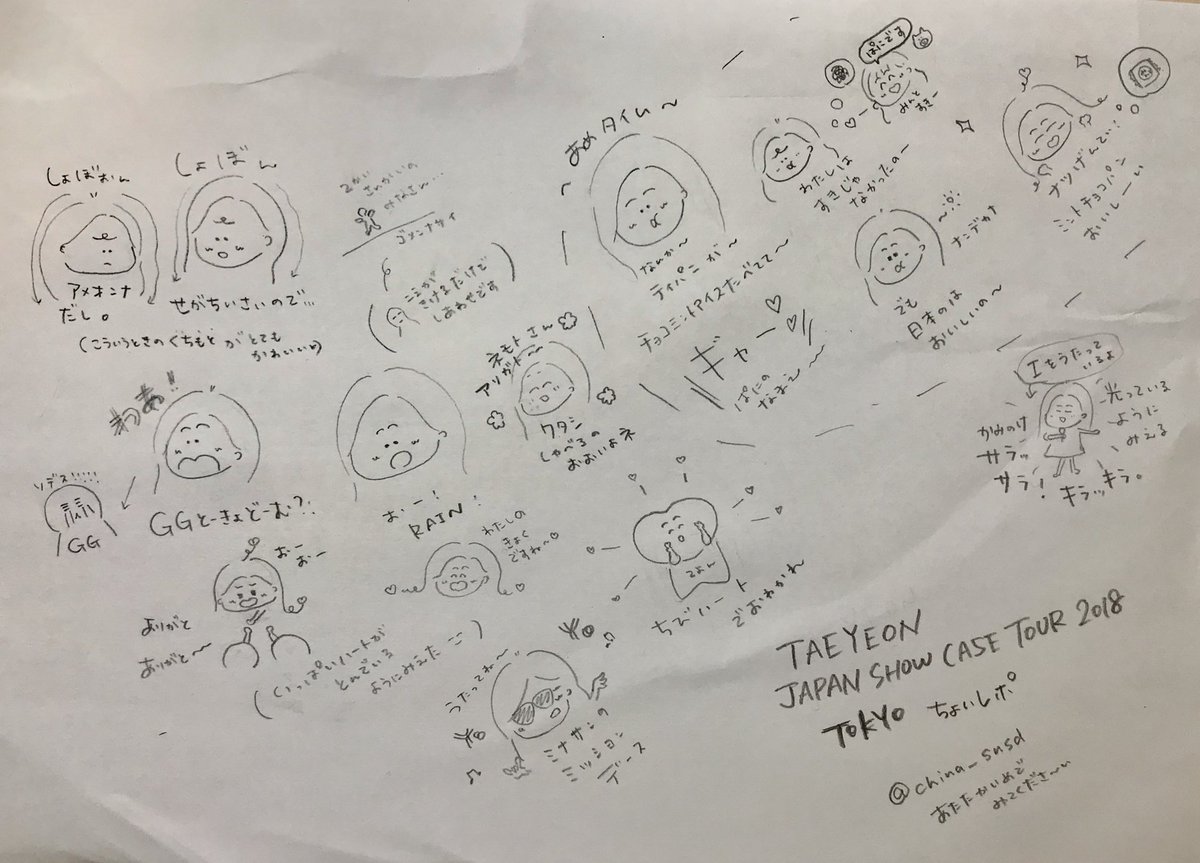 しょぼおん
アメオンナ
だし。
しょぼん
せがちいさいので…
(こういうときのくちもと がとても
かわいいと)
さんかいの
みなさん…
ゴメンナサイ
ここが
さけるだけで
しあわせです
あめタイム〜
なんか〜
ティパニが〜
チョコミントアイスたべてて〜
ギャー
ぱにの
なまえ〜
わたしは
すきじゃ
なかったの〜
ぱにです
みんと
すきー
でも
日本のは
おいしいの〜
ナンデカナ
ナツノゲンテイ
ミントチョコパン
おいしーい
わあ!!
ソデス!!!!!
GG
GGとーきょどーむ?!
おー!
RAIN!
わたしの
きょく
ですね〜♡
ネモトさん
アリガトー
ワタシ
しゃべるの
おおいよネ
Iをうたって
いるよ
かみのけ
サラッ
サラ!
光っている
ように
みえる
キラッキラ。
おー
おー
ありがと
ありがと〜
(いっぱいハートが
とんでいる
ようにみえた)
ちびハート
でおわかれ
うたってね〜
ミナサンの
ミッション
デース
TAEYEON
JAPAN SHOW CASE TOUR 2018
TOKYO ちょいレポ
@china_snsd
あたたかいめで
みてくださーい